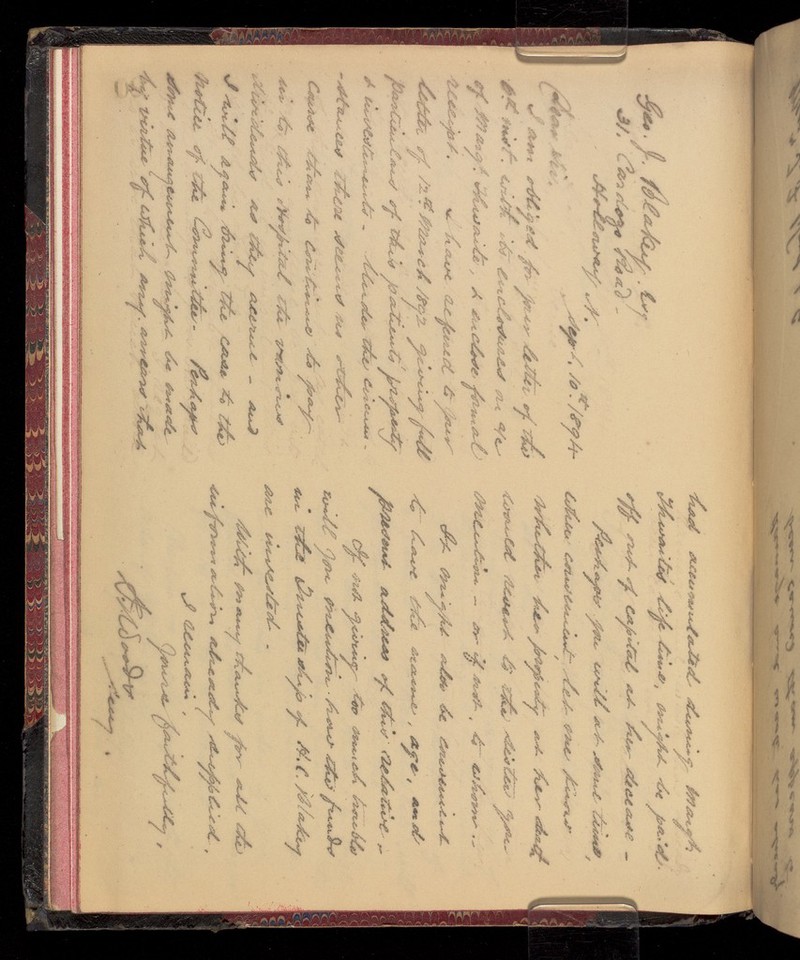 Geo. J. Blakey Esq
31. Cardozo Road -
Holloway N.
Sept. 10th 1894
Dear Sir.
I am obliged for your letter of the
6th inst. with its enclosures on a/c
of Margt. Thwaite, & enclose formal
receipt. I have referred to your
letter of 12th March 1892 giving full
particulars of this patients' property
& investments - Under the circum-
-stances there seems no other
course than to continue to pay
in to this Hospital the various
dividends as they accrue - and
I will again bring the case to the
notice of the Committee. Perhaps
some arrangement might be made
by virtue of which any arrears that
had accumulated during Margt.
Thwaites life time, might be paid
off out of capital at her decease -
Perhaps you will at some time,
when convenient, let me know
whether her property at her death
would revert to the sister you
mention - or if not, to whom -
It might also be convenient
to have the name, age, and
present address of this relative -
If not giving too much trouble
will you mention how the funds
in the Trusteeship of H.C. Blakey
are invested -
With many thanks for all the
information already supplied.
I remain,
Yours faithfully,
Woods
Secy.